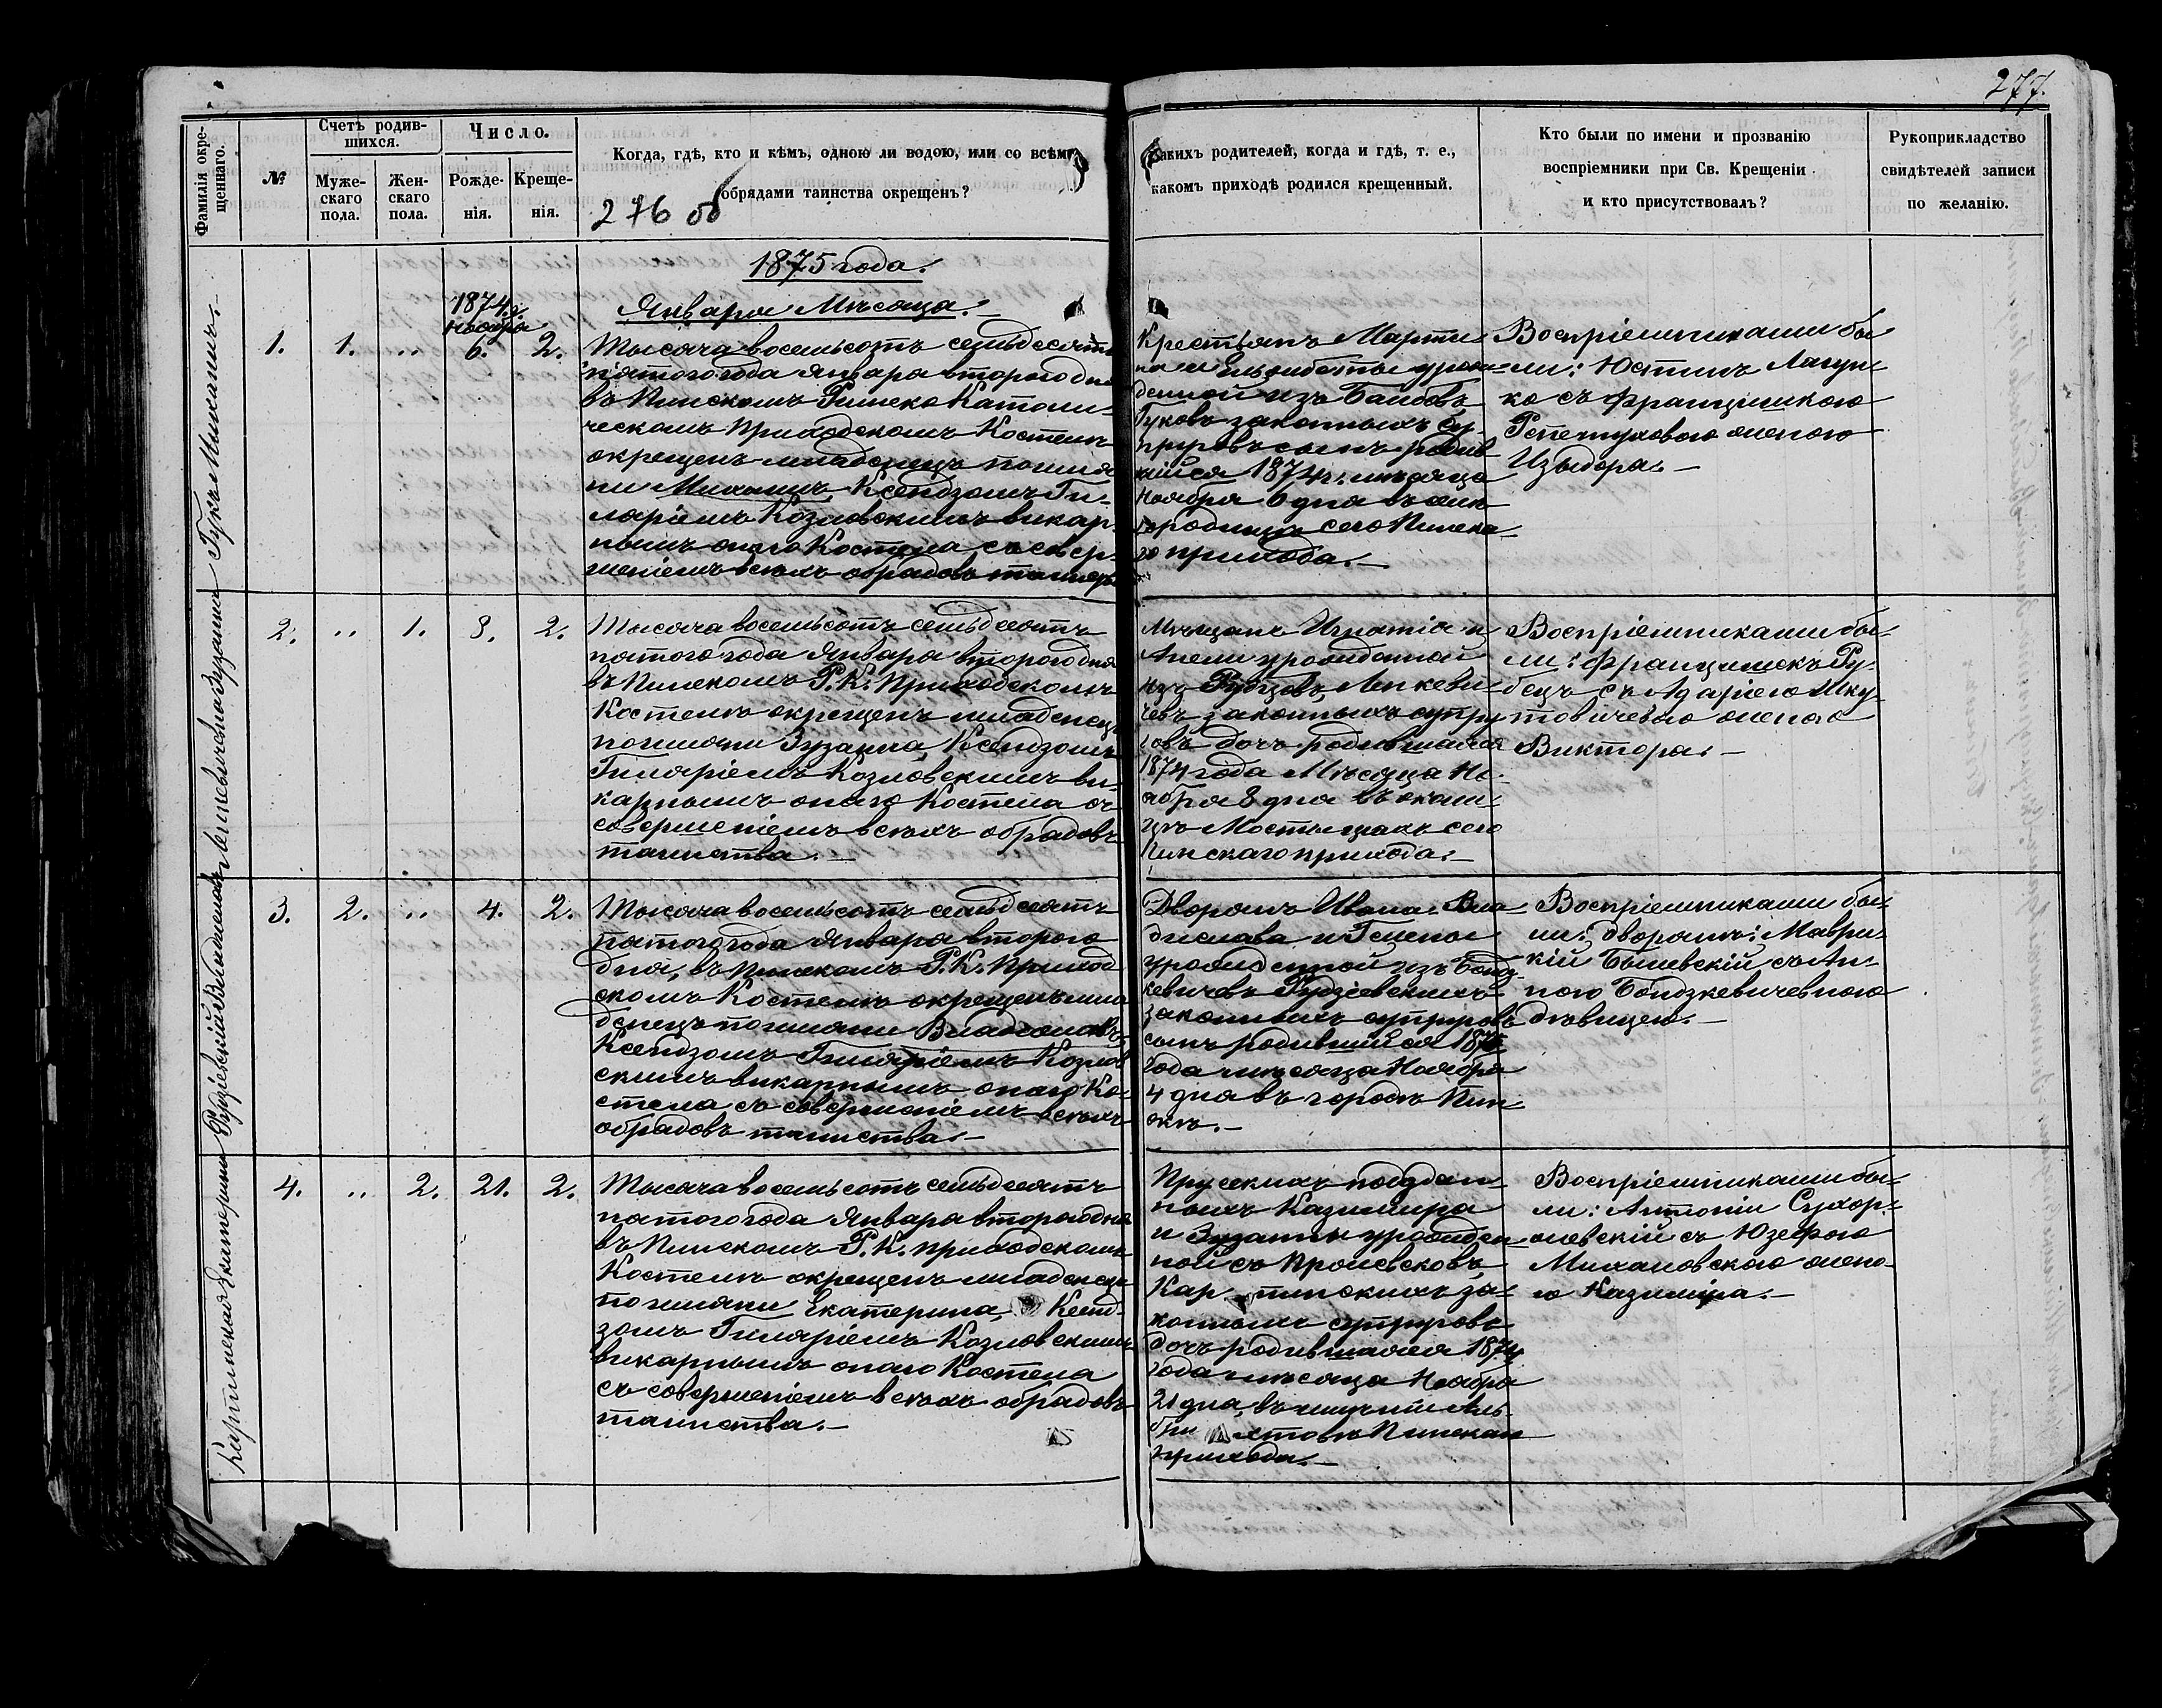 277.
Фамилія окре-
щеннаго.
№
Счетъ родив-
шихся.
Муже-
скаго
пола.
Жен-
скаго
пола.
Число.
Рожде-
нія.
Креще-
нія.
Когда, гдѣ, кто и кѣмъ, одною ли водою, или со всѣми
обрядами таинства окрещенъ?
276 об
Какихъ родителей, когда и гдѣ, т. е.,
какомъ приходѣ родился крещенный.
Кто были по имени и прозванію
воспріемники при Св. Крещеніи
и кто присутствовалъ?
Рукоприкладство
свидѣтелей записи
по желанію.
1875 года.
Января Мѣсяца.
Гукъ Михаилъ.
1.
1.
"
1874 г.
Ноября
6.
2.
Тысяча восемьсотъ семьдесятъ
пятого года Января второго дня
въ Пинскомъ Римско Католи-
ческомъ Приходскомъ Костелѣ
окрещенъ младенецъ по имя-
ни Михаилъ, Ксендзомъ Ги-
ляріемъ Козловскимъ викар-
нымъ онаго Костела, съ совер-
шеніемъ всѣхъ обрядовъ таинства
Крестьянъ Марти-
на и Ельжбеты урож-
денной изъ
Гуковъ законныхъ су-
пруговъ сынъ родив-
шійся 1874 г. мѣсяца
Ноября 6 дня въ
сего Пинска-
го прихода.
Воспріемниками бы-
ли: Юстинъ Лагун-
ко съ Францишкою
женою
Изыдора.
2.
"
1.
8.
2.
Тысяча восемьсотъ семьдесятъ
пятого года Января второго дня
въ Пинскомъ Р. К. Приходскомъ
Костелѣ окрещенъ младенецъ
по имяни Зузанна, Ксендзомъ
Гиляріемъ Козловскимъ ви-
карнымъ онаго Костела съ
совершеніемъ всѣхъ обрядовъ
таинства.
Мѣщанъ Игнатія и
Анели урожденной
изъ Рубцовъ,
законныхъ супру-
говъ дочь родившаяся
1874 года Мѣсяца Но-
ября 8 дня въ околи-
цѣ Мостыщахъ сего
Пинскаго прихода.
Воспріемниками бы-
ли: Францишекъ Ру-
бецъ съ
женою
Виктора.
Рудзіевскій Владиславъ
3.
2.
"
4.
2.
Тысяча восемьсотъ семьдесятъ
пятого года Января второго
дня, въ Пинскомъ Р. К. Приход-
скомъ Костелѣ окрещенъ мла-
денецъ по имяни Владиславъ,
Ксендзомъ Гиляріемъ Козлов-
скимъ викарнымъ онаго Ко-
стела съ совершеніемъ всѣхъ
обрядовъ таинства.
Дворянъ Ивана-Вла-
дислава и Гелены
урожденной изъ Бондз-
кевичевъ Рудзіевскихъ
законныхъ супруговъ
сынъ родившійся 1874
года мѣсяца Ноября
4 дня въ городѣ Пин-
скѣ.
Воспріемниками бы-
ли: дворянъ: Маври-
кій съ Ан-
ною Бондзкевичевною
дѣвицею.
Екатерина
4.
"
2.
21.
2.
Тысяча восемьсотъ семьдесятъ
пятого года Января второго дня
въ Пинскомъ Р. К. приходскомъ
Костелѣ окрещенъ младенецъ
по имяни Екатерина, Ксенд-
зомъ Гиляріемъ Козловскимъ
викарнымъ онаго Костела
съ совершеніемъ всѣхъ обрядовъ
таинства.
Прусскихъ поддан-
ныхъ Казимира
и Зузанны урожден-
ной съ
за-
конныхъ супруговъ
дочь родившаяся 1874
года мѣсяца Ноября
21 дня, въ имѣніи Аль-
Пинскаго
прихода.
Воспріемниками бы-
ли: Антоній Сухор-
жевскій съ Юзефою
Михаловскою жено-
ю Казиміра.